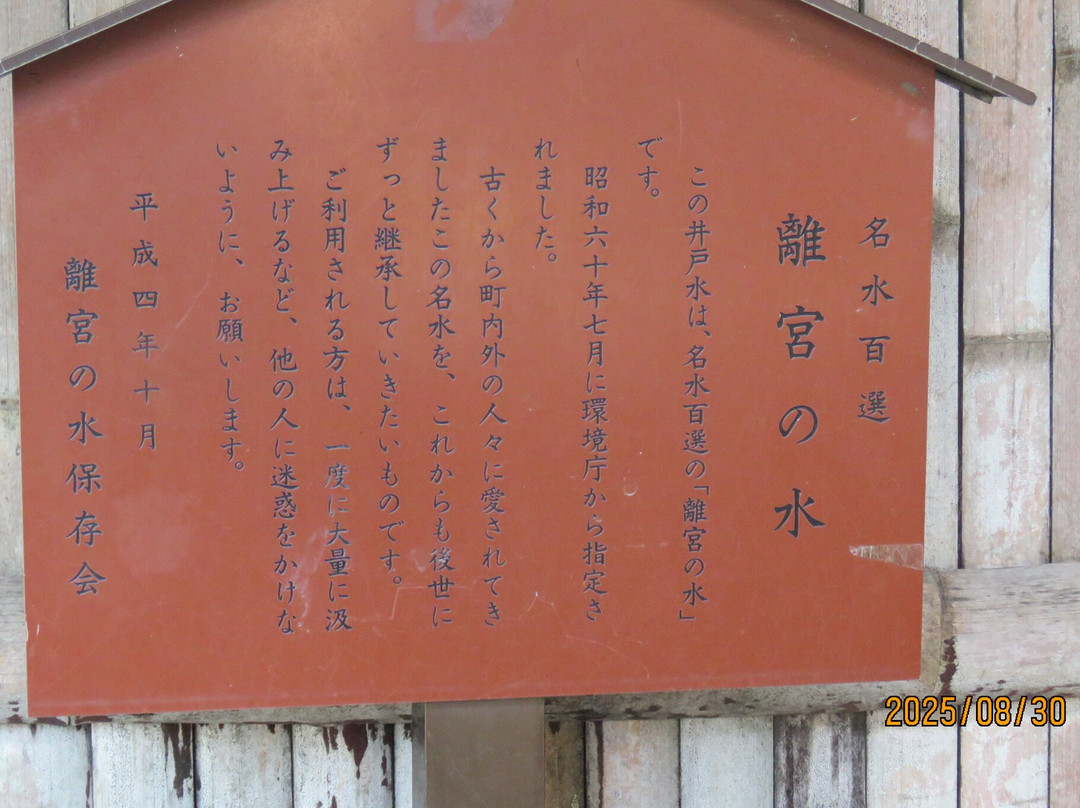 名水百選
離宮の水
この井戸水は、名水百選の「離宮の水」
です。
昭和六十年七月に環境庁から指定さ
れました。
古くから町内外の人々に愛されてき
ましたこの名水を、これからも後世に
ずっと継承していきたいものです。
ご利用される方は、一度に大量に汲
み上げるなど、他の人に迷惑をかけな
いように、お願いします。
平成四年十月
離宮の水保存会
2025/08/30